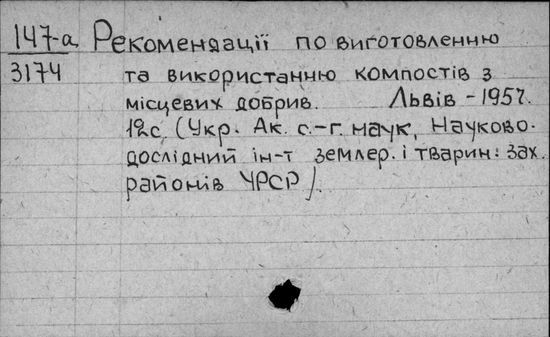 147-а Рекомендації по виготовленню
3174 та використанню компостів з
місцевих добрив. Львів - 1957.
12с. (Укр. Ак. с.-г. наук, Науково-
дослідний ін-т землер. і тварин: зах.
районів УРСР).